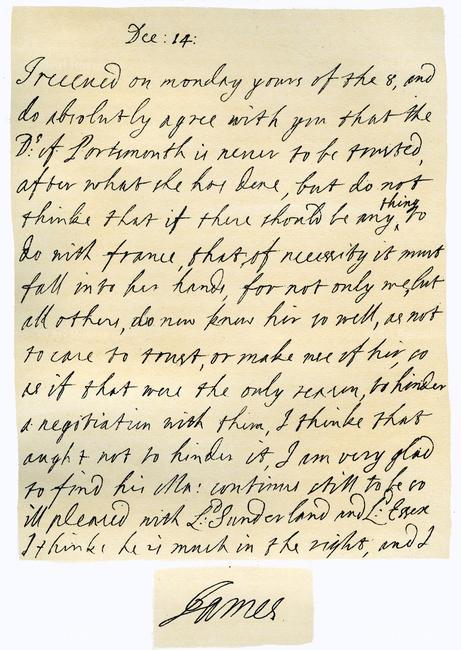 Dec: 14:
I receued on monday yours of the 8, and
do absolutly agree with you that the
D:s of Portsmouth is never to be trusted,
after what she has done, but do not
thinke that if there should be any thing to
do with france, that of necessity it must
fall into her hands, for not only we, but
all others, do now know her so well, as not
to care to trust, or make use of her, so
as if that were the only reason, to hinder
a negotiation with them, I thinke that
aught not to hinder it, I am very glad
to find his Ma: continus still to be so
ill pleased with Ld: Sunderland and Ld: Essex
I thinke he is much in the right, and I
James